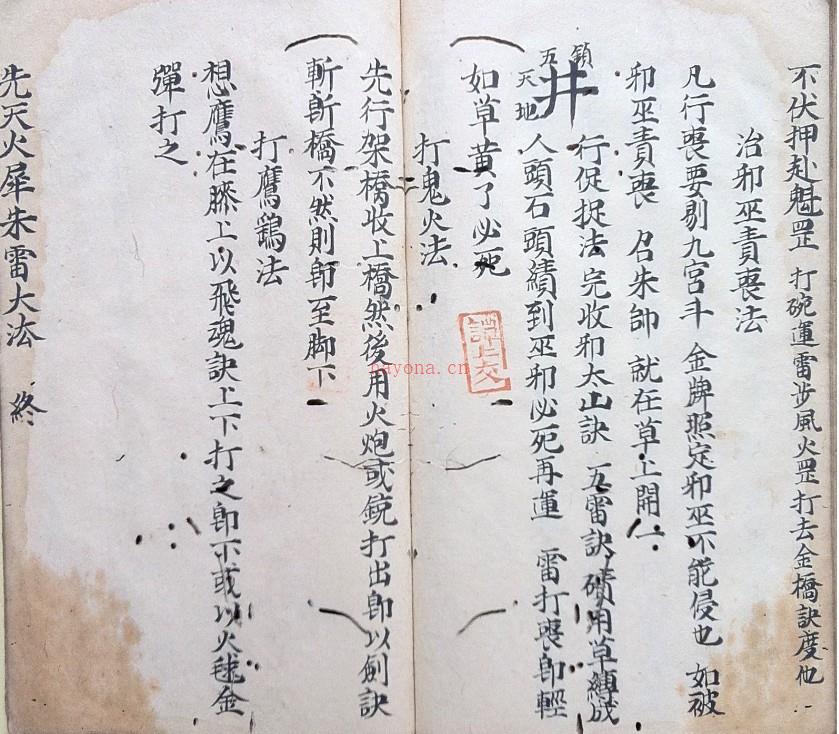 不伏押赴魁罡 打碗運雷步風火罡打去金橋訣度他
治邪巫責喪法
凡行喪要剔九宮斗 金牌照定邪巫不能侵也 如被
邪巫責喪 召朱帥 就在草上開一
鎖
井
五
天地
行促捉法完收邪太山訣 五雷訣 磧用草縛成
人頭石頭績到巫邪必死再運 雷打喪即輕
如草黃了必死
譚上交
打鬼火法
先行架橋收上橋然後用火炮或銃打出即以劍訣
斬斷橋不然則即至脚下
打鷹鷄法
想鷹在膝上以飛魂訣上下打之即下或以火毬金
彈打之
先天火犀朱雷大法 終
nayona.cn